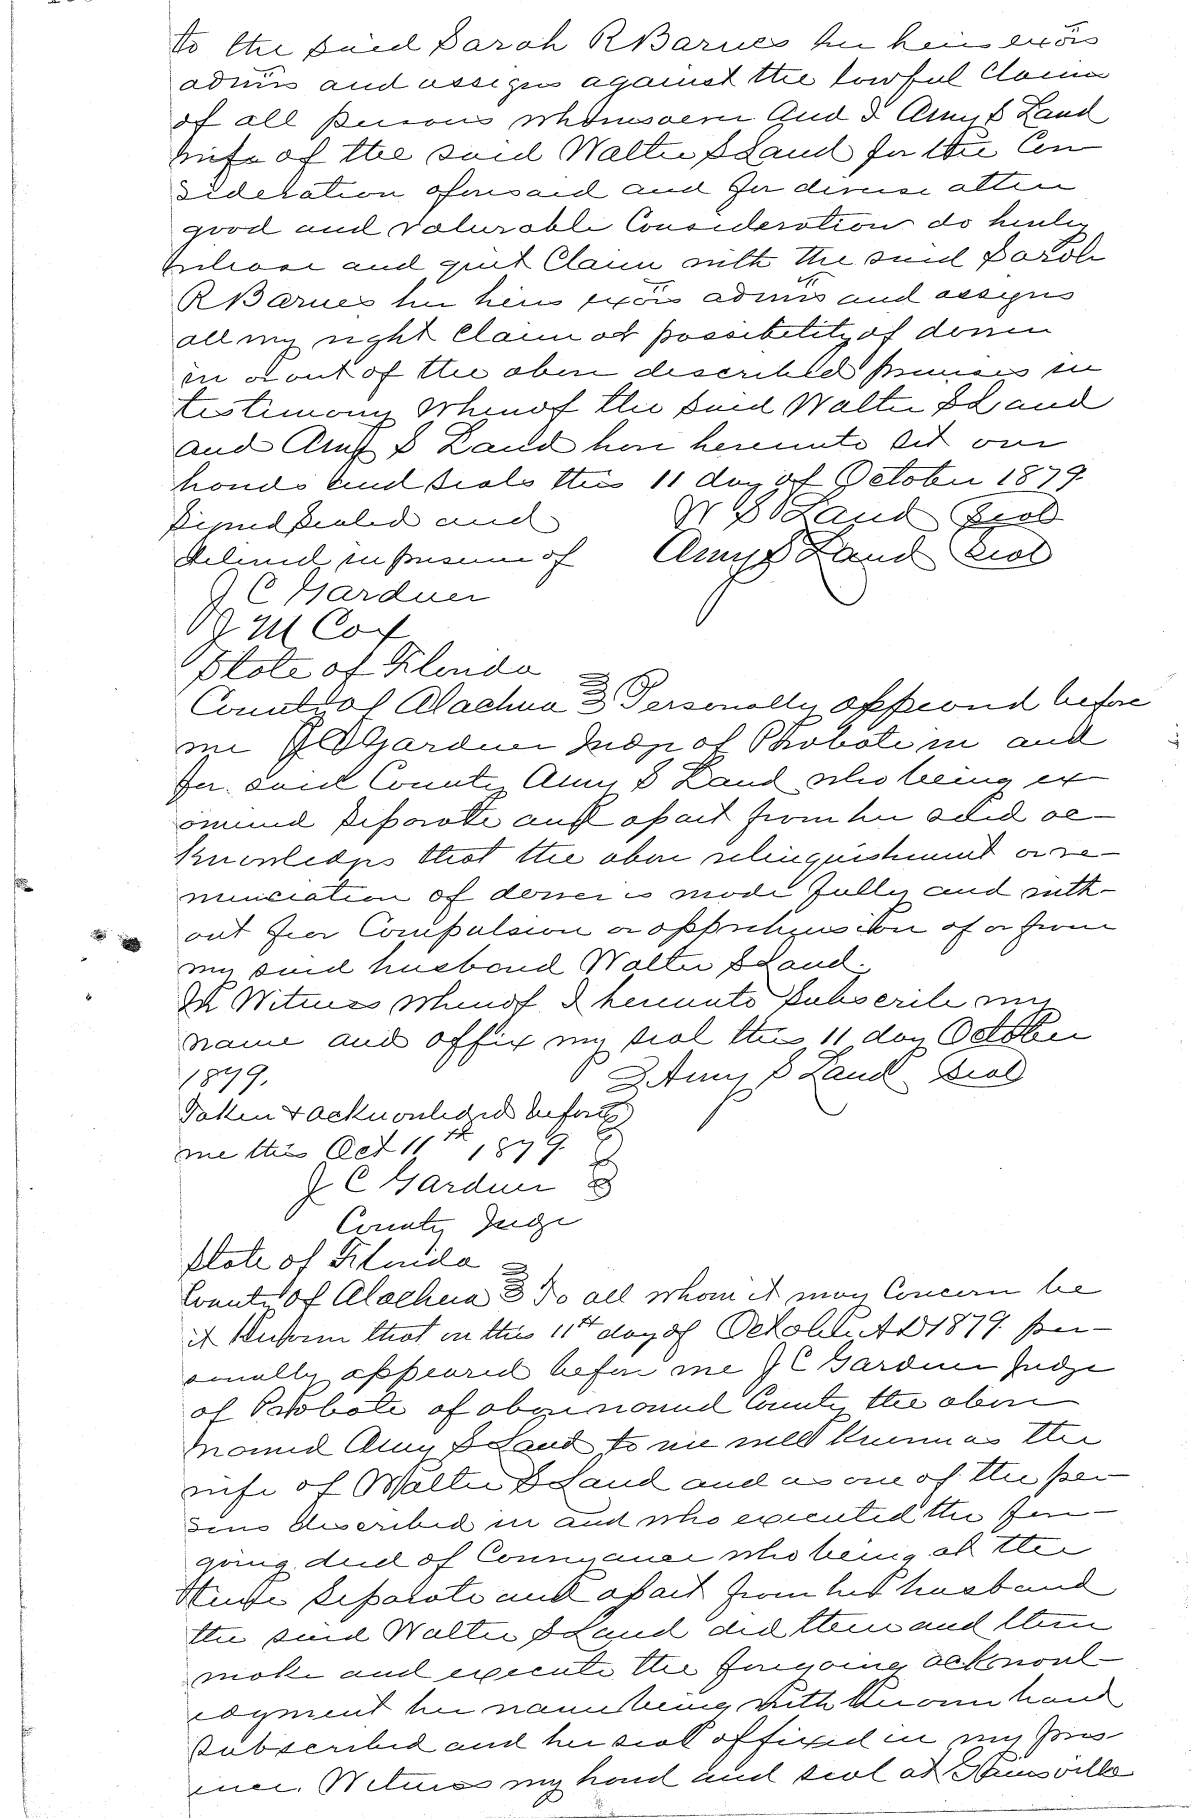 to the said Sarah R Barnes her heirs exors
admrs and assigns against the lawful claims
of all persons whomsoever And I Amy S Land
wife of the said Walter S Land for the Con
sideration aforesaid and for diverse other
good and valuable Consideration do hereby
release and quit Claim with the said Sarah
R Barnes her heirs exors admrs and assigns
all my right Claim or possibility of dower
in or out of the above described premises in
testimony whereof the said Walter S Land
and Amy S Land have hereunto set our
hands and seals this 11 day of October 1879
Signed Sealed and W S Land Seal
delivered in presence of Amy S Land Seal
J C Gardner
J M Cox
State of Florida
County of Alachua Personally appeared before
me J C Gardner Judge of Probate in and
for said County Amy S Land who being ex
amined Separate and apart from her said ac-
knowledges that the above relinquishment or re-
nunciation of dower is made fully and with-
out fear Compulsion or apprehension of or from
my said husband Walter S Land.
In Witness whereof I hereunto Subscribe my
name and affix my seal this 11 day October
1879. Amy S Land Seal
Taken & acknowledged before
me this Oct 11th 1879.
J C Gardner
County Juge
State of Florida
County of Alachua To all whom it may Concern be
it Known that on this 11th day of October AD 1879 per-
sonally appeared before me J C Gardner Judge
of Probate of above named County the above
named Amy S Land to me well known as the
wife of Walter S Land and as one of the per-
sons described in and who executed the fore-
going deed of Conveyance who being at the
time Separate and apart from her husband
the said Walter S Land did then and there
make and execute the foregoing acknowl-
edgment her name being with her own hand
Subscribed and her seal affixed in my pres
ence. Witness my hand and seal at Gainsville